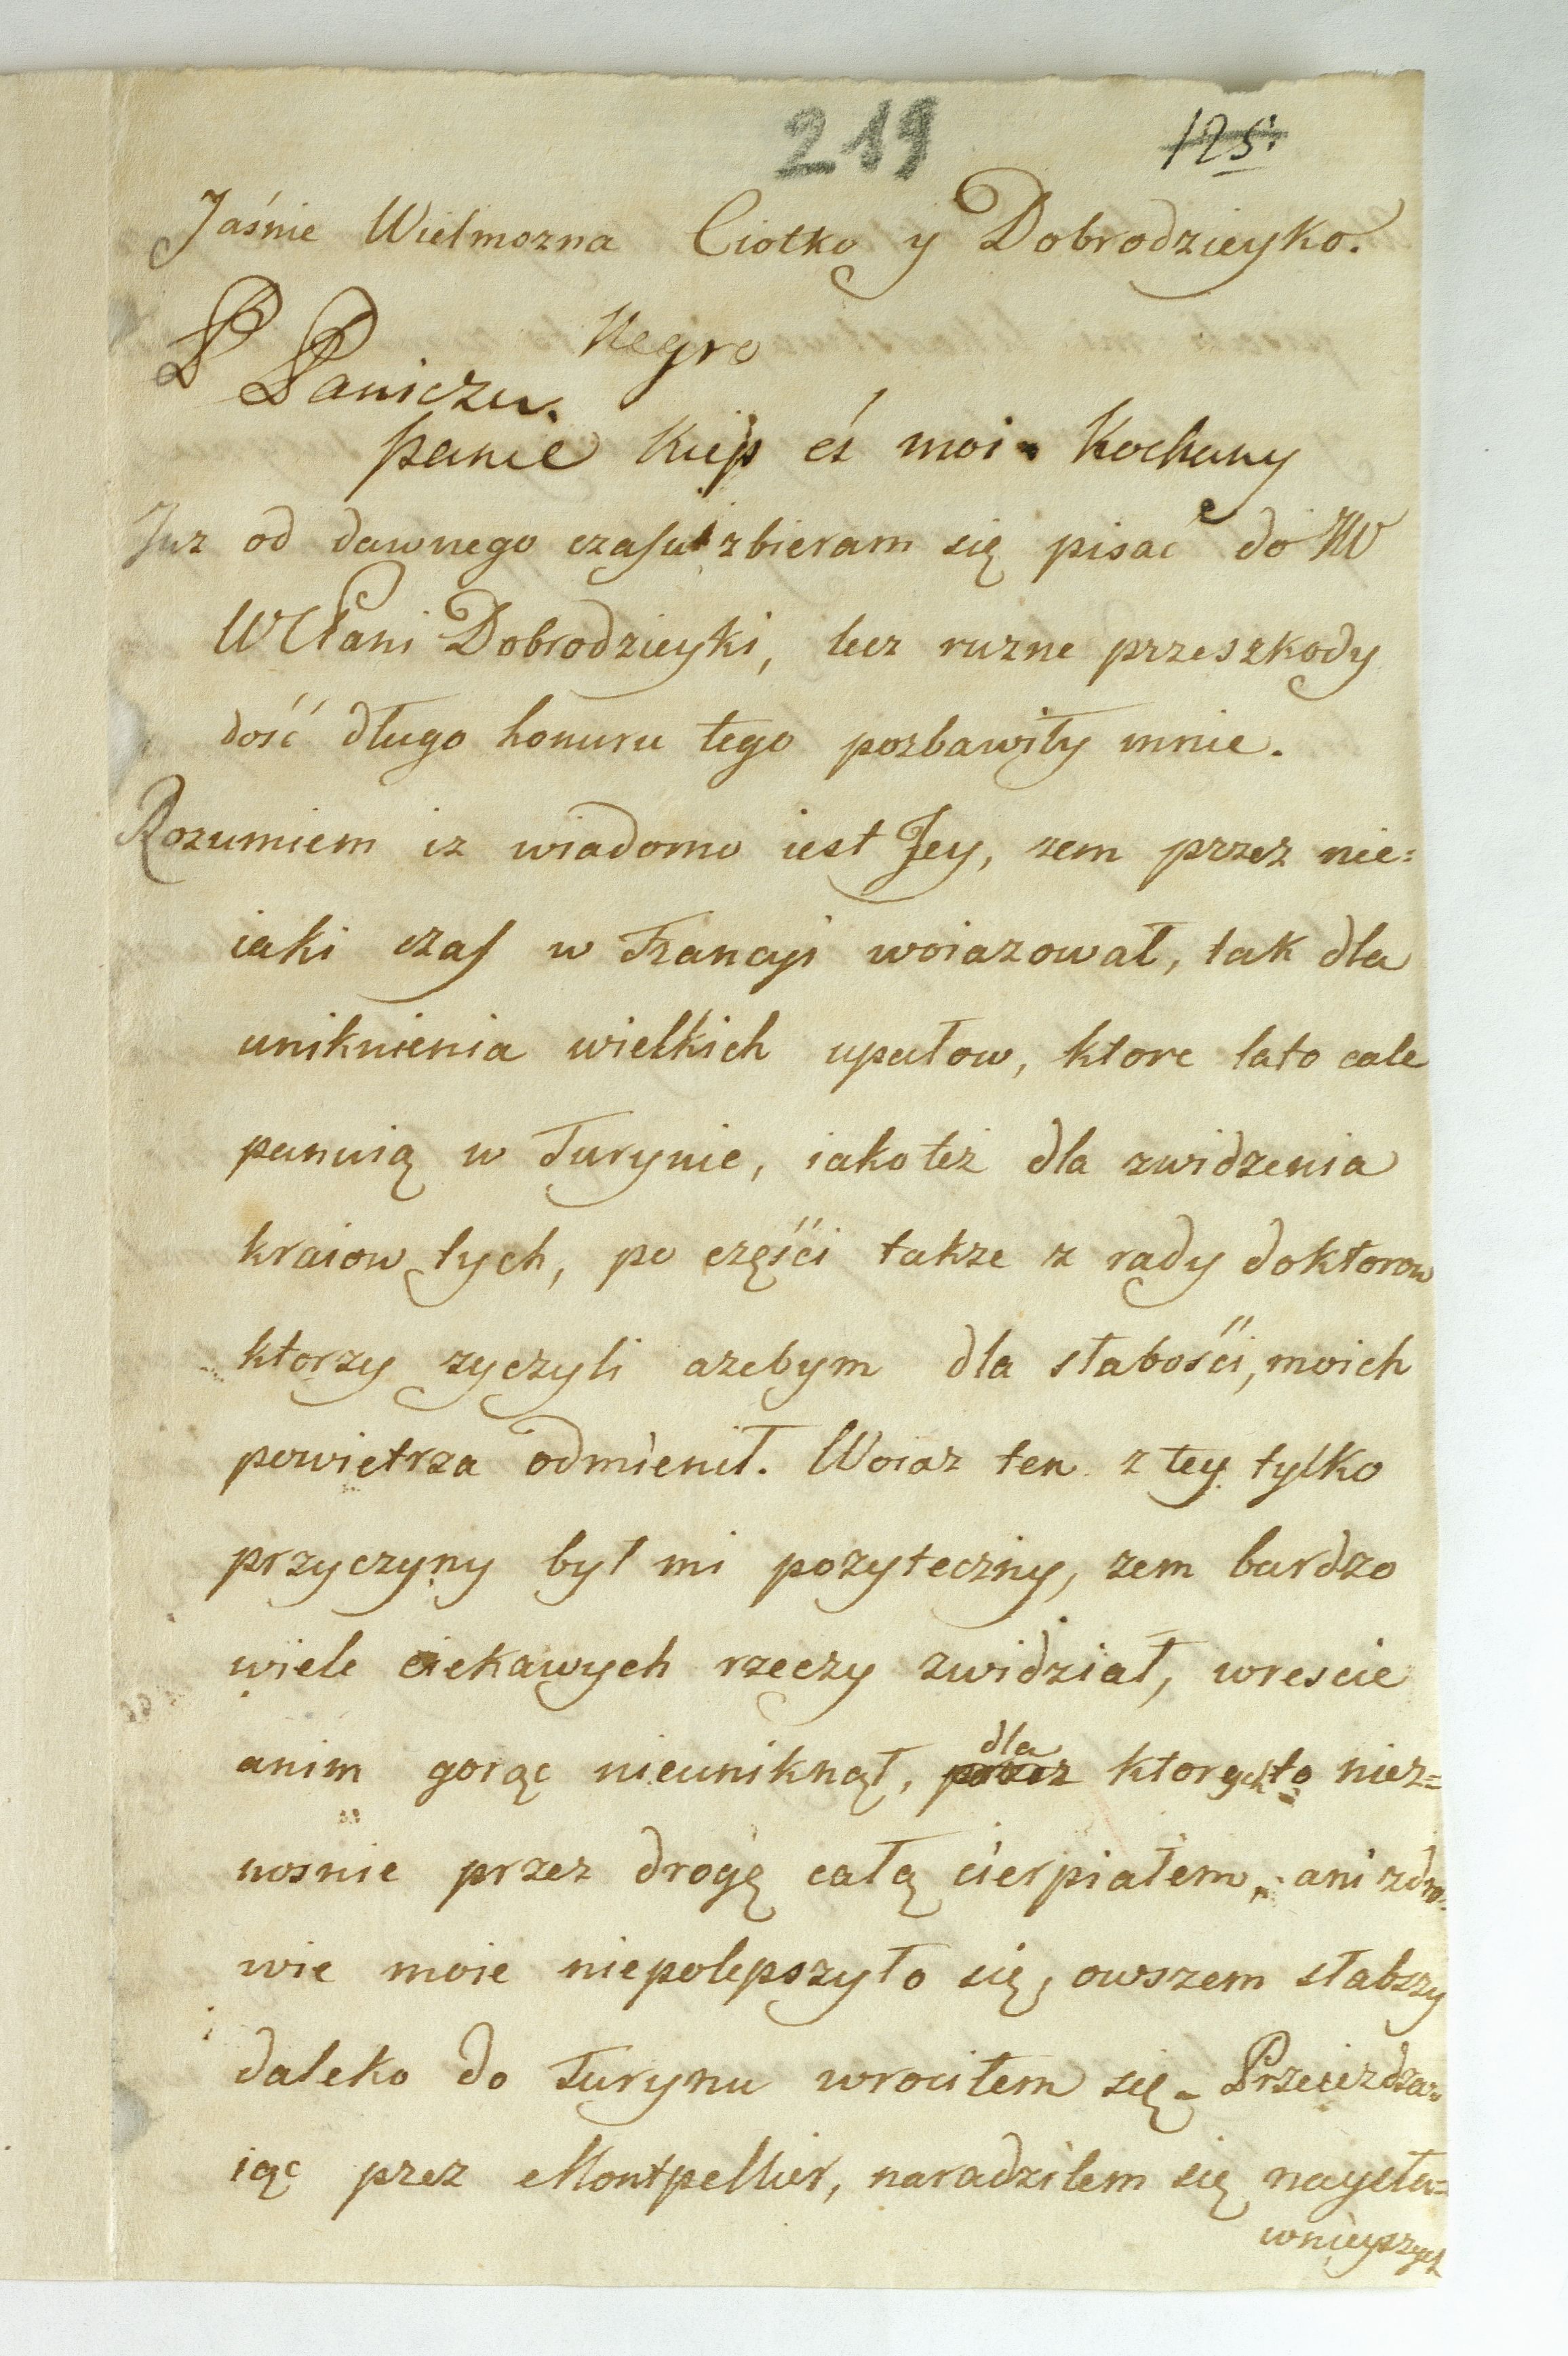 219 125.
Jaśnie Wielmozna Ciotko y Dobrodzieyko.
Negro
P Paniczu.
panie Kiep eś moi Kochany
Juz od dawnego czasu zbieram się pisać do JW
WPani Dobrodzieyki, lecz ruzne przeszkody
dość długo honuru tego pozbawiły mnie.
Rozumiem iz wiadomo iest Jey, zem przez nie=
iaki czas w Francyi woiazował, tak dla
uniknienia wielkich upałow, ktore lato cale
panuią w Turynie, iako też dla zwidzenia
kraiow tych, po częśći takze z rady doktorow
ktorzy zyczyli azebym dla słabośći, moich
powietrza odmienił. Woiaz ten z tey tylko
przyczyny był mi pozyteczny, zem bardzo
wiele ciekawych rzeczy zwidział, wrescie
anim gorąc nieuniknął, przez dla ktorych to niez=
nosnie przez drogę całą cierpiałem, ani zdro=
wie moie niepolepszyło się, owszem słabszy
daleko do Turynu wrocitem się. Przeiezdza=
iąc przez Montpellier, naradziłem się naysła=
wnieyszych